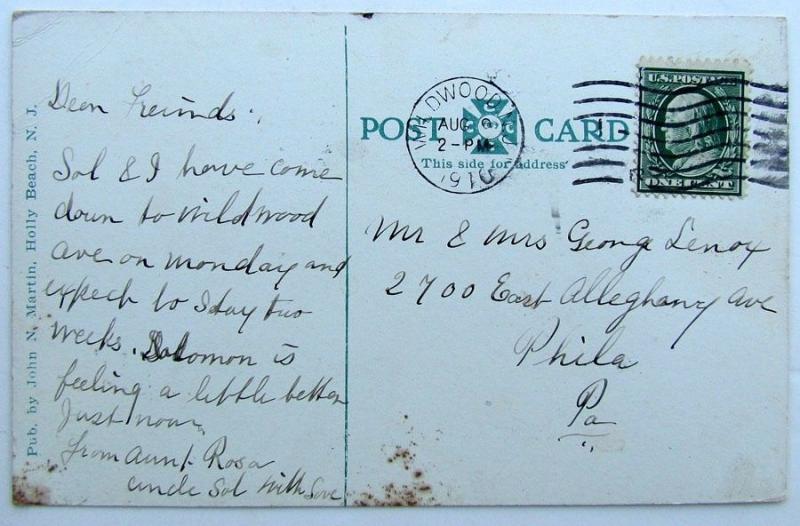 Pub. by John N. Martin, Holly Beach, N. J.
Dear Freinds.
Sol & I have come
down to Wildwood
Ave on Monday and
expect to Stay two
weeks. Solomon is
feeling a little better
Just now
from Aunt Rosa
uncle Sol With Love
POST CARD
This side for address
WILDWOOD N.J.
AUG
2-PM
U.S. POSTAGE
ONE CENT
Mr & Mrs George Lenox
2700 East Alleghany Ave
Phila
Pa